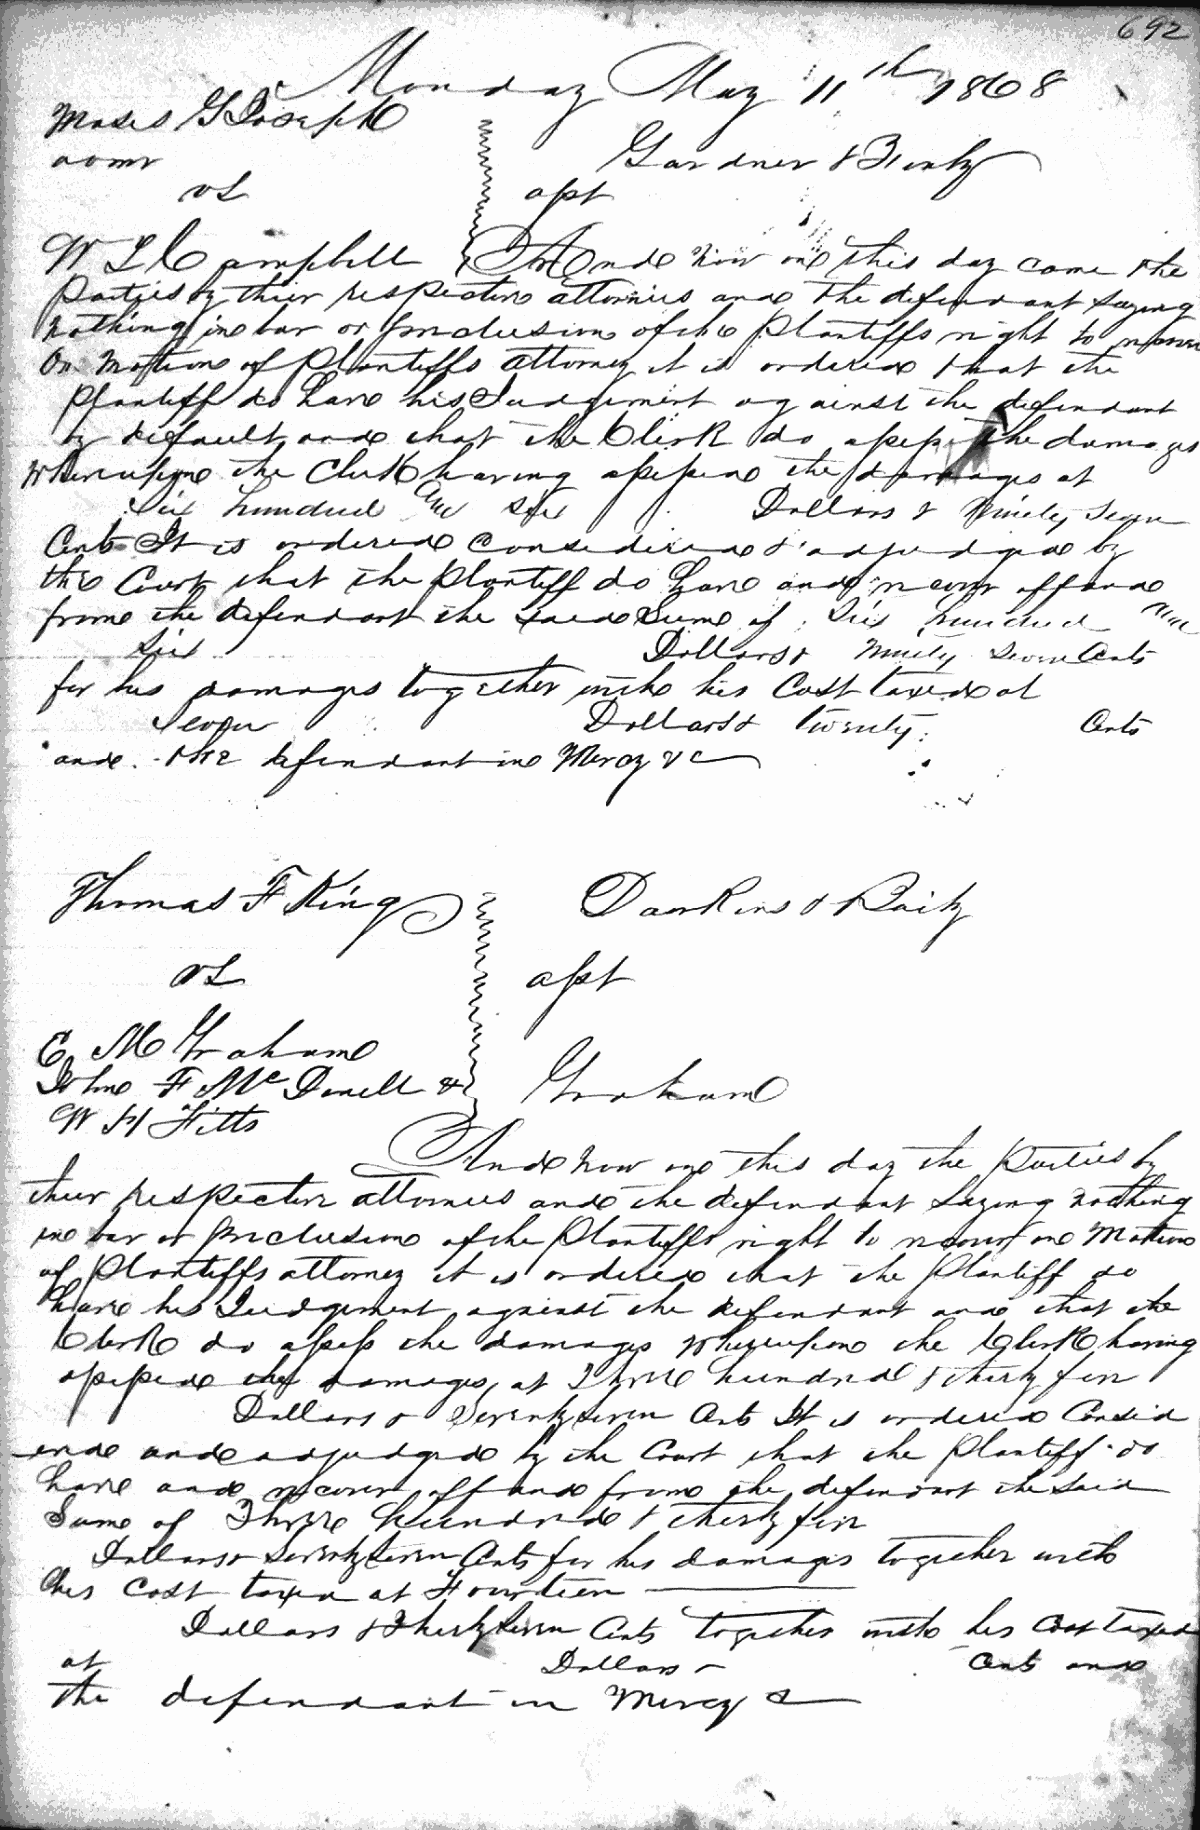 692
Monday May 11th 1868
Moses G Joseph
admr Gardner &
vs apt
W L Campbell And now on this day came the
Parties by their respective attornies and the defendant saying
nothing in bar or preclusion of the Plantiffs right to recover
On Motion of Plantiffs attorney it is ordered that the
Plantiff do have his Judgement against the defendant
by default and that the Clerk do assess the damages
Whereupon the Clerk having assessed the damages at
Six hundred and six Dollars & Ninety Seven
Cents It is ordered Considered & adjudged by
the Court that the Plantiff do have and recover off and
from the defendant the said Sum of Six hundred and
Six Dollars & Ninety Seven Cents
for his damages together with his Cost taxed at
Seven Dollars & twenty Cents
and the defendant in Mercy &c
Thomas F King Dawkins &
vs apt
C M Graham
John F McDonell & Graham
W H Fitts
And now on this day the Parties by
their respective attornies and the defendant saying nothing
in bar or preclusion of the Plantiffs right to recover on Motion
of Plantiffs attorney it is ordered that the Plantiff do
have his Judgement against the defendant and that the
Clerk do assess the damages Whereupon the Clerk having
assessed the damages at Three hundred & thirty five
Dollars & Seventy Seven Cents It is ordered Consid
ered and adjudged by the Court that the Plantiff do
have and recover off and from the defendant the said
Sum of Three hundred & thirty five
Dollars & Seventy Seven Cents for his damages together with
his Cost taxed at Fourteen
Dollars & Thirty Seven Cents together with his Cost taxed
at Dollars Cents and
the defendant in Mercy &